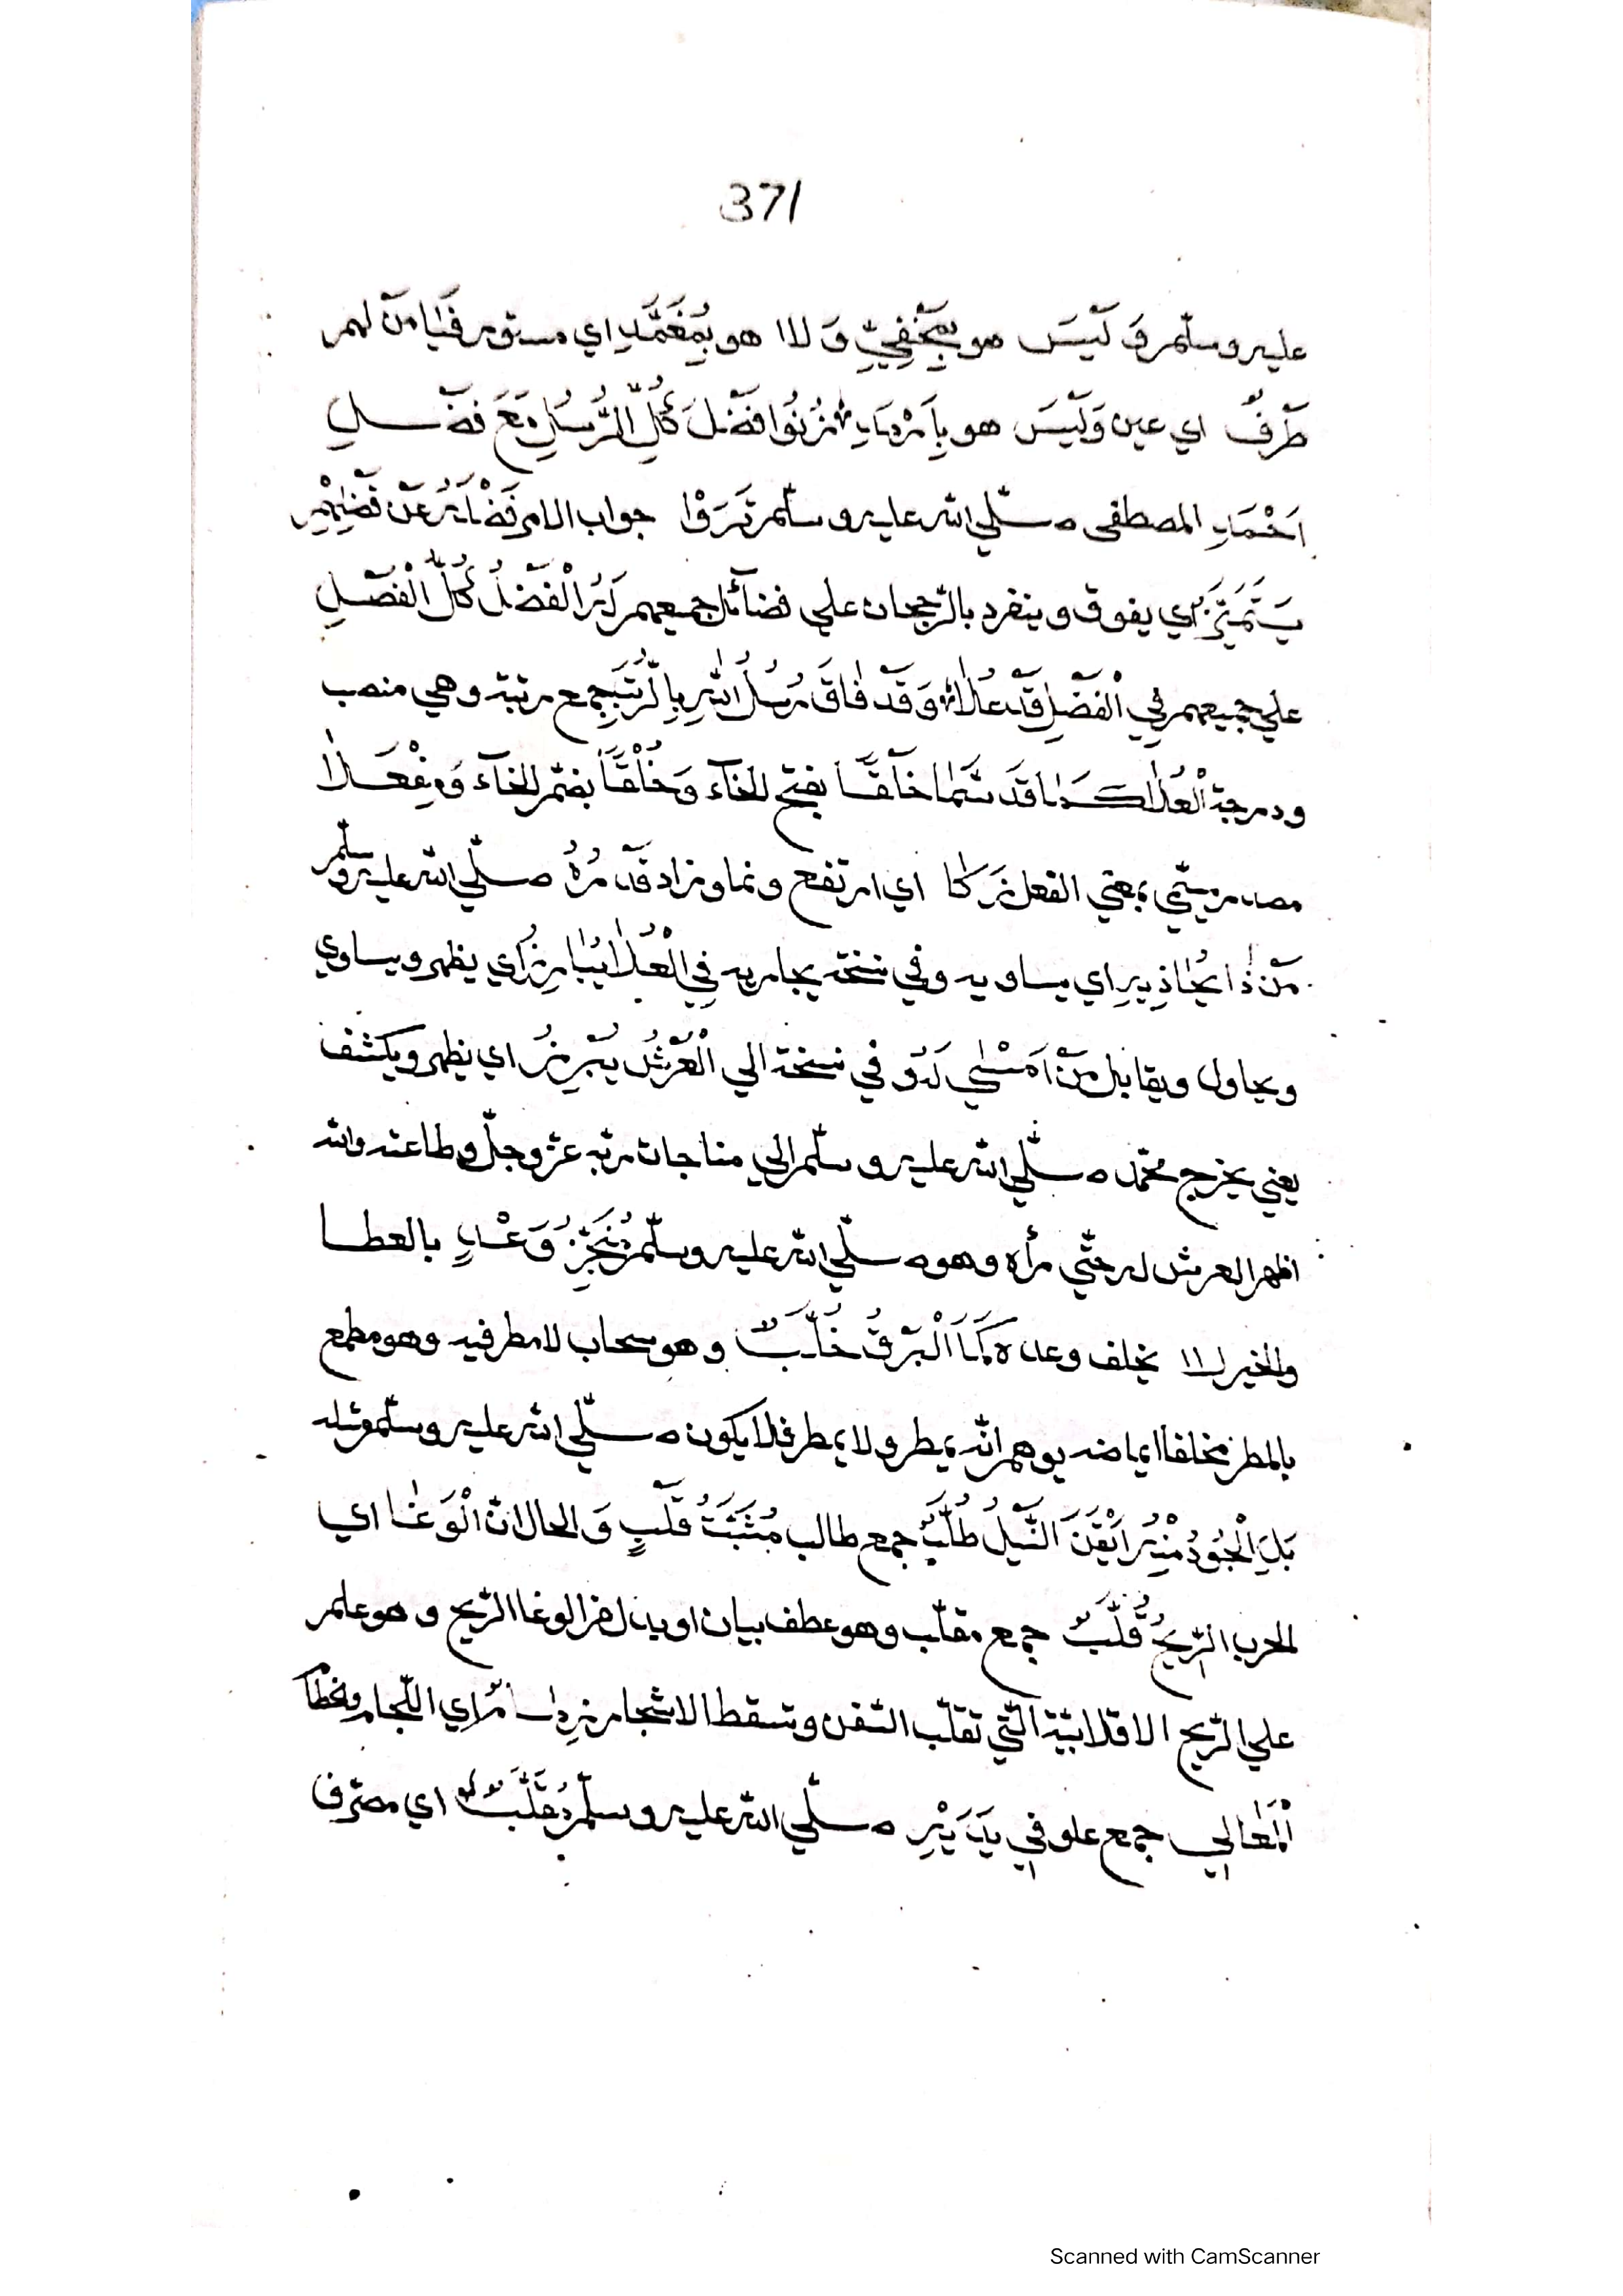 371
عليه وسلّم وَلَيْسَ هو بِمَخْفِيٍّ وَلا هو بِمُغَمَّدِ اي مستور فَيَا مَنْ لهم
طَرْفٌ اي عين وَلَيْسَ هو بِاَرْمَدِ زِنُوا فَضْلَ كُلِّ الرُّسُلِ مَعَ فَضْلِ
اَحْمَدِ المصطفى صلّي الله عليه وسلّم تَرَوْا جواب الامر فَضْلَهُ عَنْ فَضْلِهِمْ
يَتَمَيَّزُ اي يفوق وينفرد بالرّجحان علي فضآئل جميعهم لَهُ الْفَضْلُ كُلُّ الْفَضْلِ
علي جميعهم فِي الْفَضْلِ قَدْ عُلَا وَقَدْ فَاقَ رُسُلَ اللهِ بِالرُّتَبِ جمع مرتبة وهي منصب
ودرجة الْعُلَا كَمَا قَدْ سَمَا خَلْقًا بفتح الخآء وَخُلْقًا بضمّ الخآء وَمِفْعَلَا
مصدر ميمّي بمعني الفعل زَكَا اي ارتفع ونما وزاد قَدْرُهُ صلّي الله عليه وسلّم
مَنْ ذَا يُحَاذِيهِ اي يساويه وفي نسخة يجاريه فِي الْعُلَا يُبَارِزُ اي يظهر ويساوي
ويحاول ويقابل مَنْ اَمْسَي لَهُ وفي نسخة الي الْعَرْشُ يَبْرِزُ اي يظهر ويكشف
يعني يخرج محمّد صلّي الله عليه وسلّم الي مناجات ربّه عزّ وجلّ وطاعته والله
اظهر العرش له حتّي رأه وهو صلّي الله عليه وسلّم مُنَجِّزُ وَعْدٍ بالعطا
والخير لا يخلف وعده كَمَا الْبَرْقُ خُلَّبٌ وهو سحاب لا مطر فيه وهو مطمع
بالمطر مخلفا ايماضه يوهم انّه يمطر ولا يمطر فلا يكون صلّي الله عليه وسلّم مثله
بَلِ الْجُودُ مِنْهُ اَيْقَنَ النَّيْلَ طُلَّبٌ جمع طالب مُثَبَّتُ قَلْبٍ وَالحال انّ الْوَغَا اي
الحرب الرِّيحُ قُلَّبٌ جمع مقلّب وهو عطف بيان او بدل من الوغا الرّيح وهو علم
علي الرّيح الاقلابيّة الّتي تقلّب السّفن وتسقط الاشجار زِمَامُ اي اللّجام وخطا
الْمَعَالِي جمع علو فِي يَدَيْهِ صلّي الله عليه وسلّم مُقَلَّبٌ اي مصرّف
Scanned with CamScanner